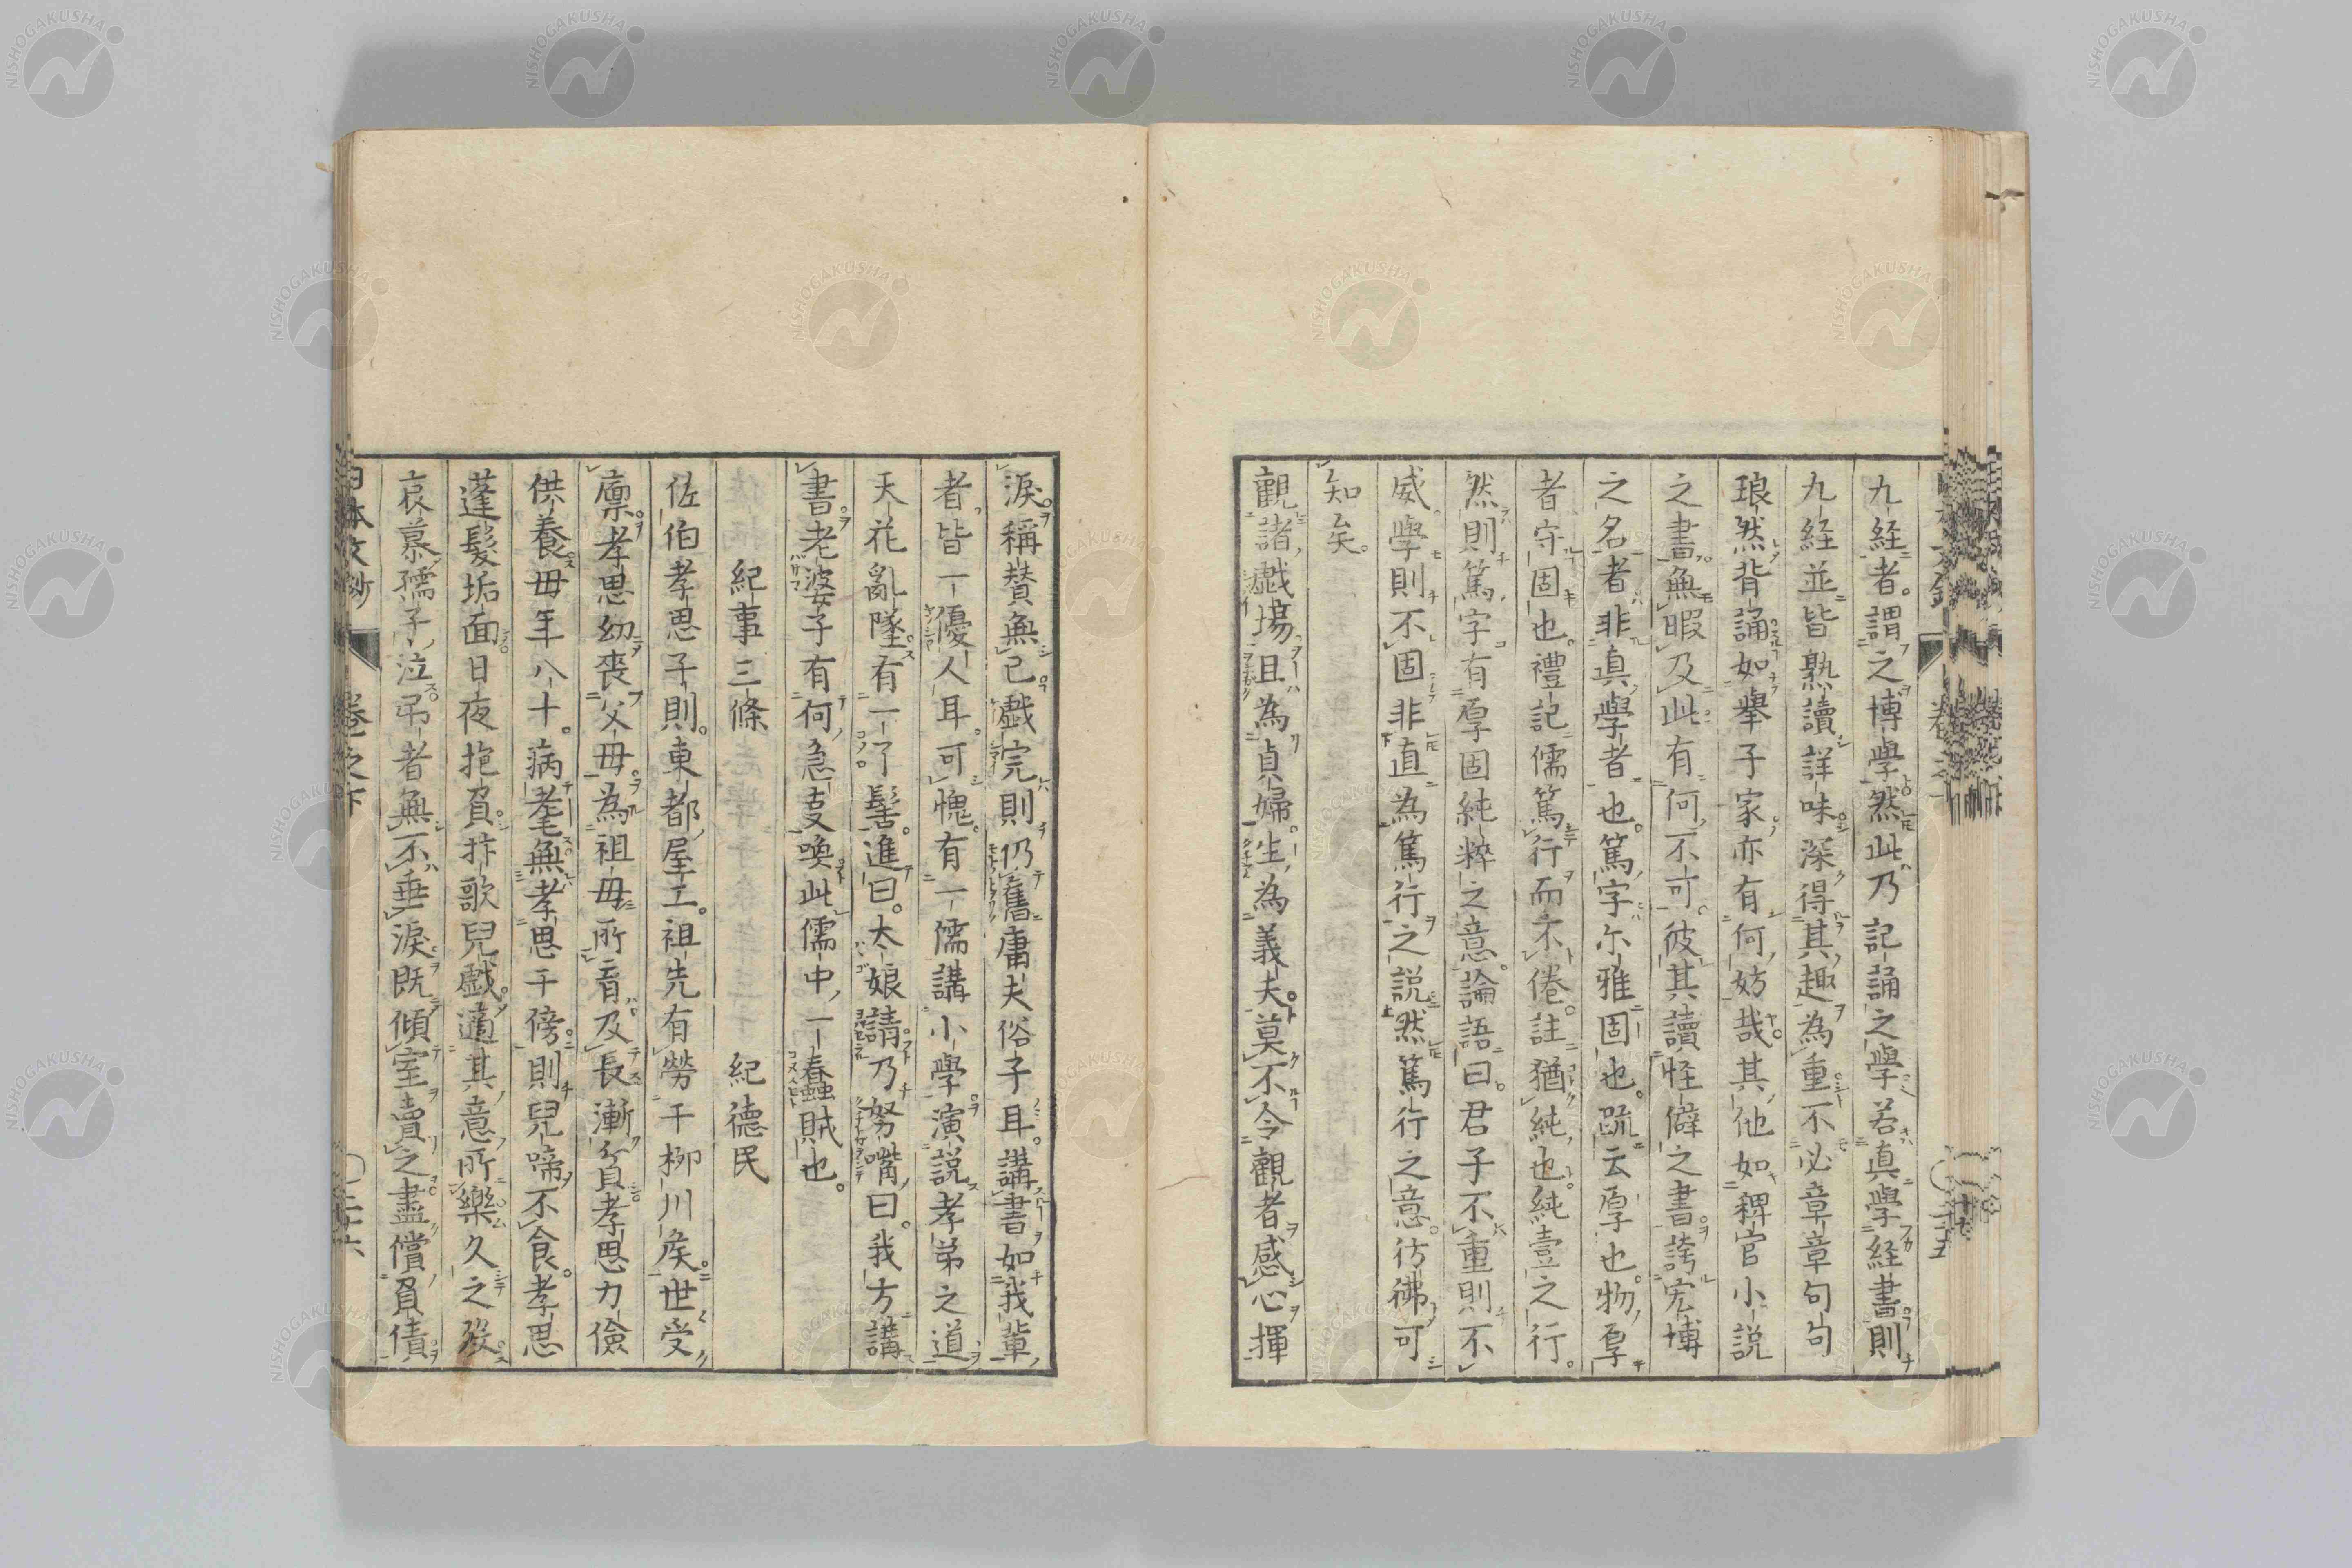 九経者。謂之博學然此乃記誦之學若真學経書則
九経並皆熟讀詳味深得其趣為重不必章章句句
琅然背誦如舉子家亦有何妨哉其他如稗官小説
之書無暇及此有何不可。彼其讀怪僻之書誇宏博
之名者非真學者也。篤字尓雅固也。疏云厚也。物厚
者守固也。禮記儒篤行而不倦。註猶純也。純壹之行。
然則篤字有厚固純粹之意。論語曰。君子不重則不
威學則不固非直為篤行之説然篤行之意。彷彿可
知矣。
觀諸戯場且為貞婦。生為義夫。莫不令觀者感心揮
淚。稱賛無已戯完則仍舊庸夫俗子耳。講書如我輩
者皆一優人耳。可愧。有一儒講小學演説孝弟之道
天花亂墜有一了髻。進曰。太娘請乃努嘴曰。我方講
書。老婆子有何急支喚此儒中一蠢賊也。
紀事三條 紀德民
佐伯孝思子則。東都屋工。祖先有勞于柳川矦。世受
廪。孝思幼喪父母為祖母所育及長漸貧孝思力儉
供養母年八十。病耄無孝思千傍。則兒啼不食。孝思
蓬髮垢面日夜抱負拊歌兒戯適其意所樂久之歿
哀慕孺子泣吊者無不垂淚既傾室賣之盡償負債
日本文鈔 卷之下 二十六